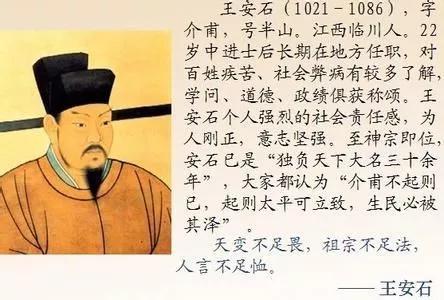 王安石（1021－1086），字
介甫，号半山。江西临川人。22
岁中进士后长期在地方任职，对
百姓疾苦、社会弊病有较多了解，
学问、道德、政绩俱获称颂。王
安石个人强烈的社会责任感，为
人刚正，意志坚强。至神宗即位，
安石已是“独负天下大名三十余
年”，大家都认为“介甫不起则
已，起则太平可立致，生民必被
其泽”。
天变不足畏，祖宗不足法，
人言不足恤。
——王安石